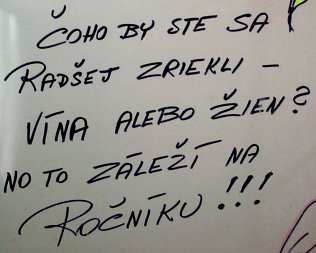 ČOHO BY STE SA
RADŠEJ ZRIEKLI –
VÍNA ALEBO ŽIEN?
NO TO ZÁLEŽÍ NA
ROČNÍKU!!!